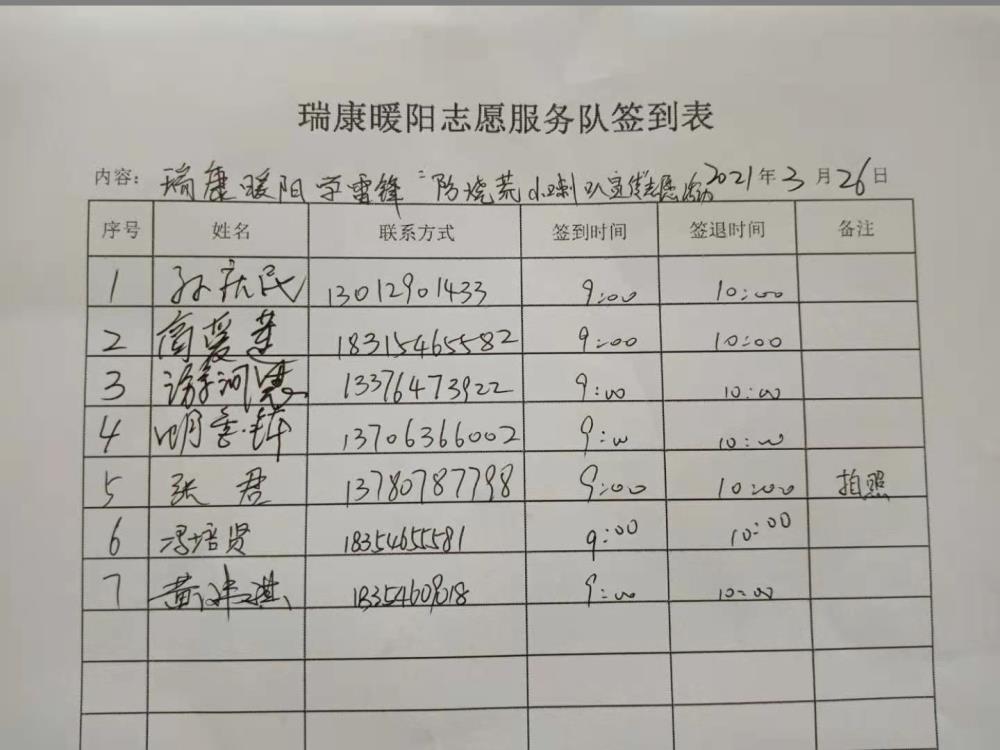 瑞康暖阳志愿服务队签到表
内容：瑞康暖阳学雷锋"防烧荒小喇叭宣传志愿活动 2021年3月26日
序号 姓名 联系方式 签到时间 签退时间 备注
1 孙庆民 13012901433 9:00 10:00
2 高爱莲 18315465582 9:00 10:00
3 游河 13376473922 9:00 10:00
4 明 13706366002 9:00 10:00
5 张君 13780787798 9:00 10:00 拍照
6 冯培贤 18354655581 9:00 10:00
7 黄 淇 9:00 10:00